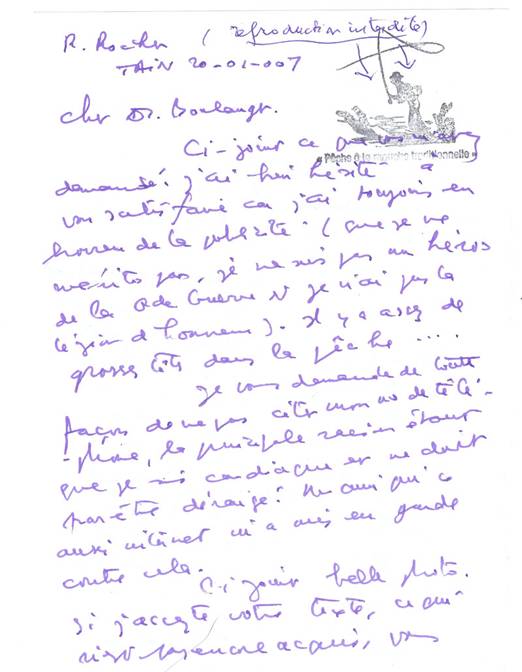 R. Rocher (reproduction interdite)
TAIN 20-01-007
« Pêche à la mouche traditionnelle »
Cher Dr. Boulanger.
Ci-joint ce que vous m'avez
demandé! j'ai bien hésité à
vous satisfaire car j'ai toujours eu
horreur de la publicité. (que je ne
mérite pas, je ne suis pas un héros
de la Guerre et je n'ai pas la
légion d'honneur). Il y a assez de
grosses têtes dans la pêche ....
je vous demande de toute
façon de ne pas citer mon no de télé-
-phone, la principale raison étant
que je suis cardiaque et ne doit
pas être dérangé! Un ami qui a
aussi internet m'a mis en garde
contre cela.
Ci-joint belle photo.
Si j'accepte votre texte, ce qui
n'est pas encore acquis, vous